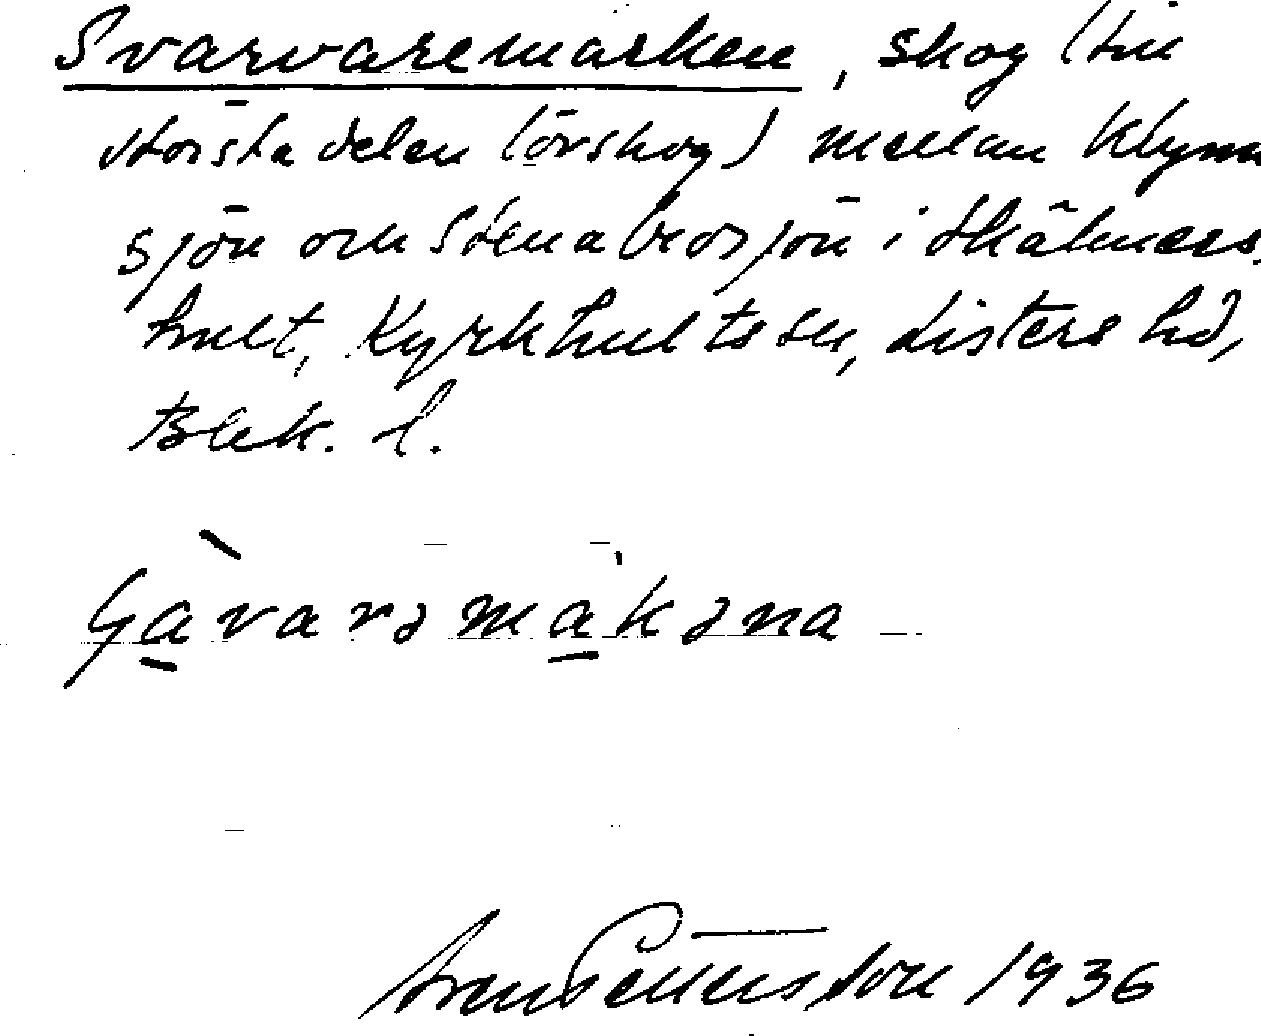 Svarvaremarken, skog (till
största delen lövskog) mellan Klynn
sjön och Stenabrosjön i Skälmers-
hult, Kyrkhults sn, Listers hd,
Blek. l.
Sven Pettersson 1936